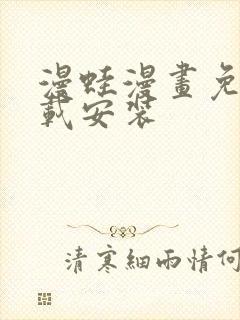 漫蛙漫畫免
載安裝
清寒細雨情何